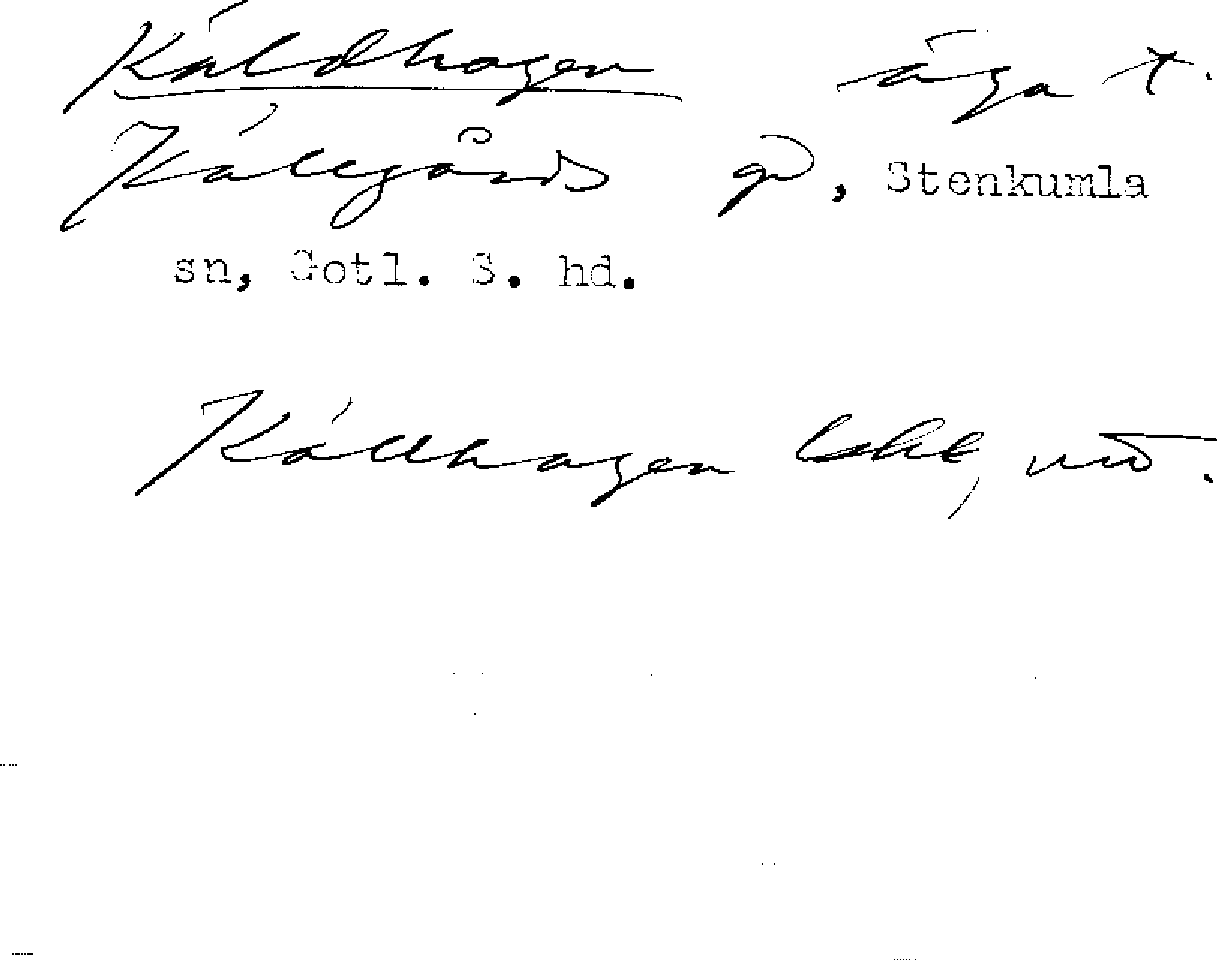 Käldhagen äga t.
Källegårds gd, Stenkumla
sn, Gotl. S. hd.
Källhagen